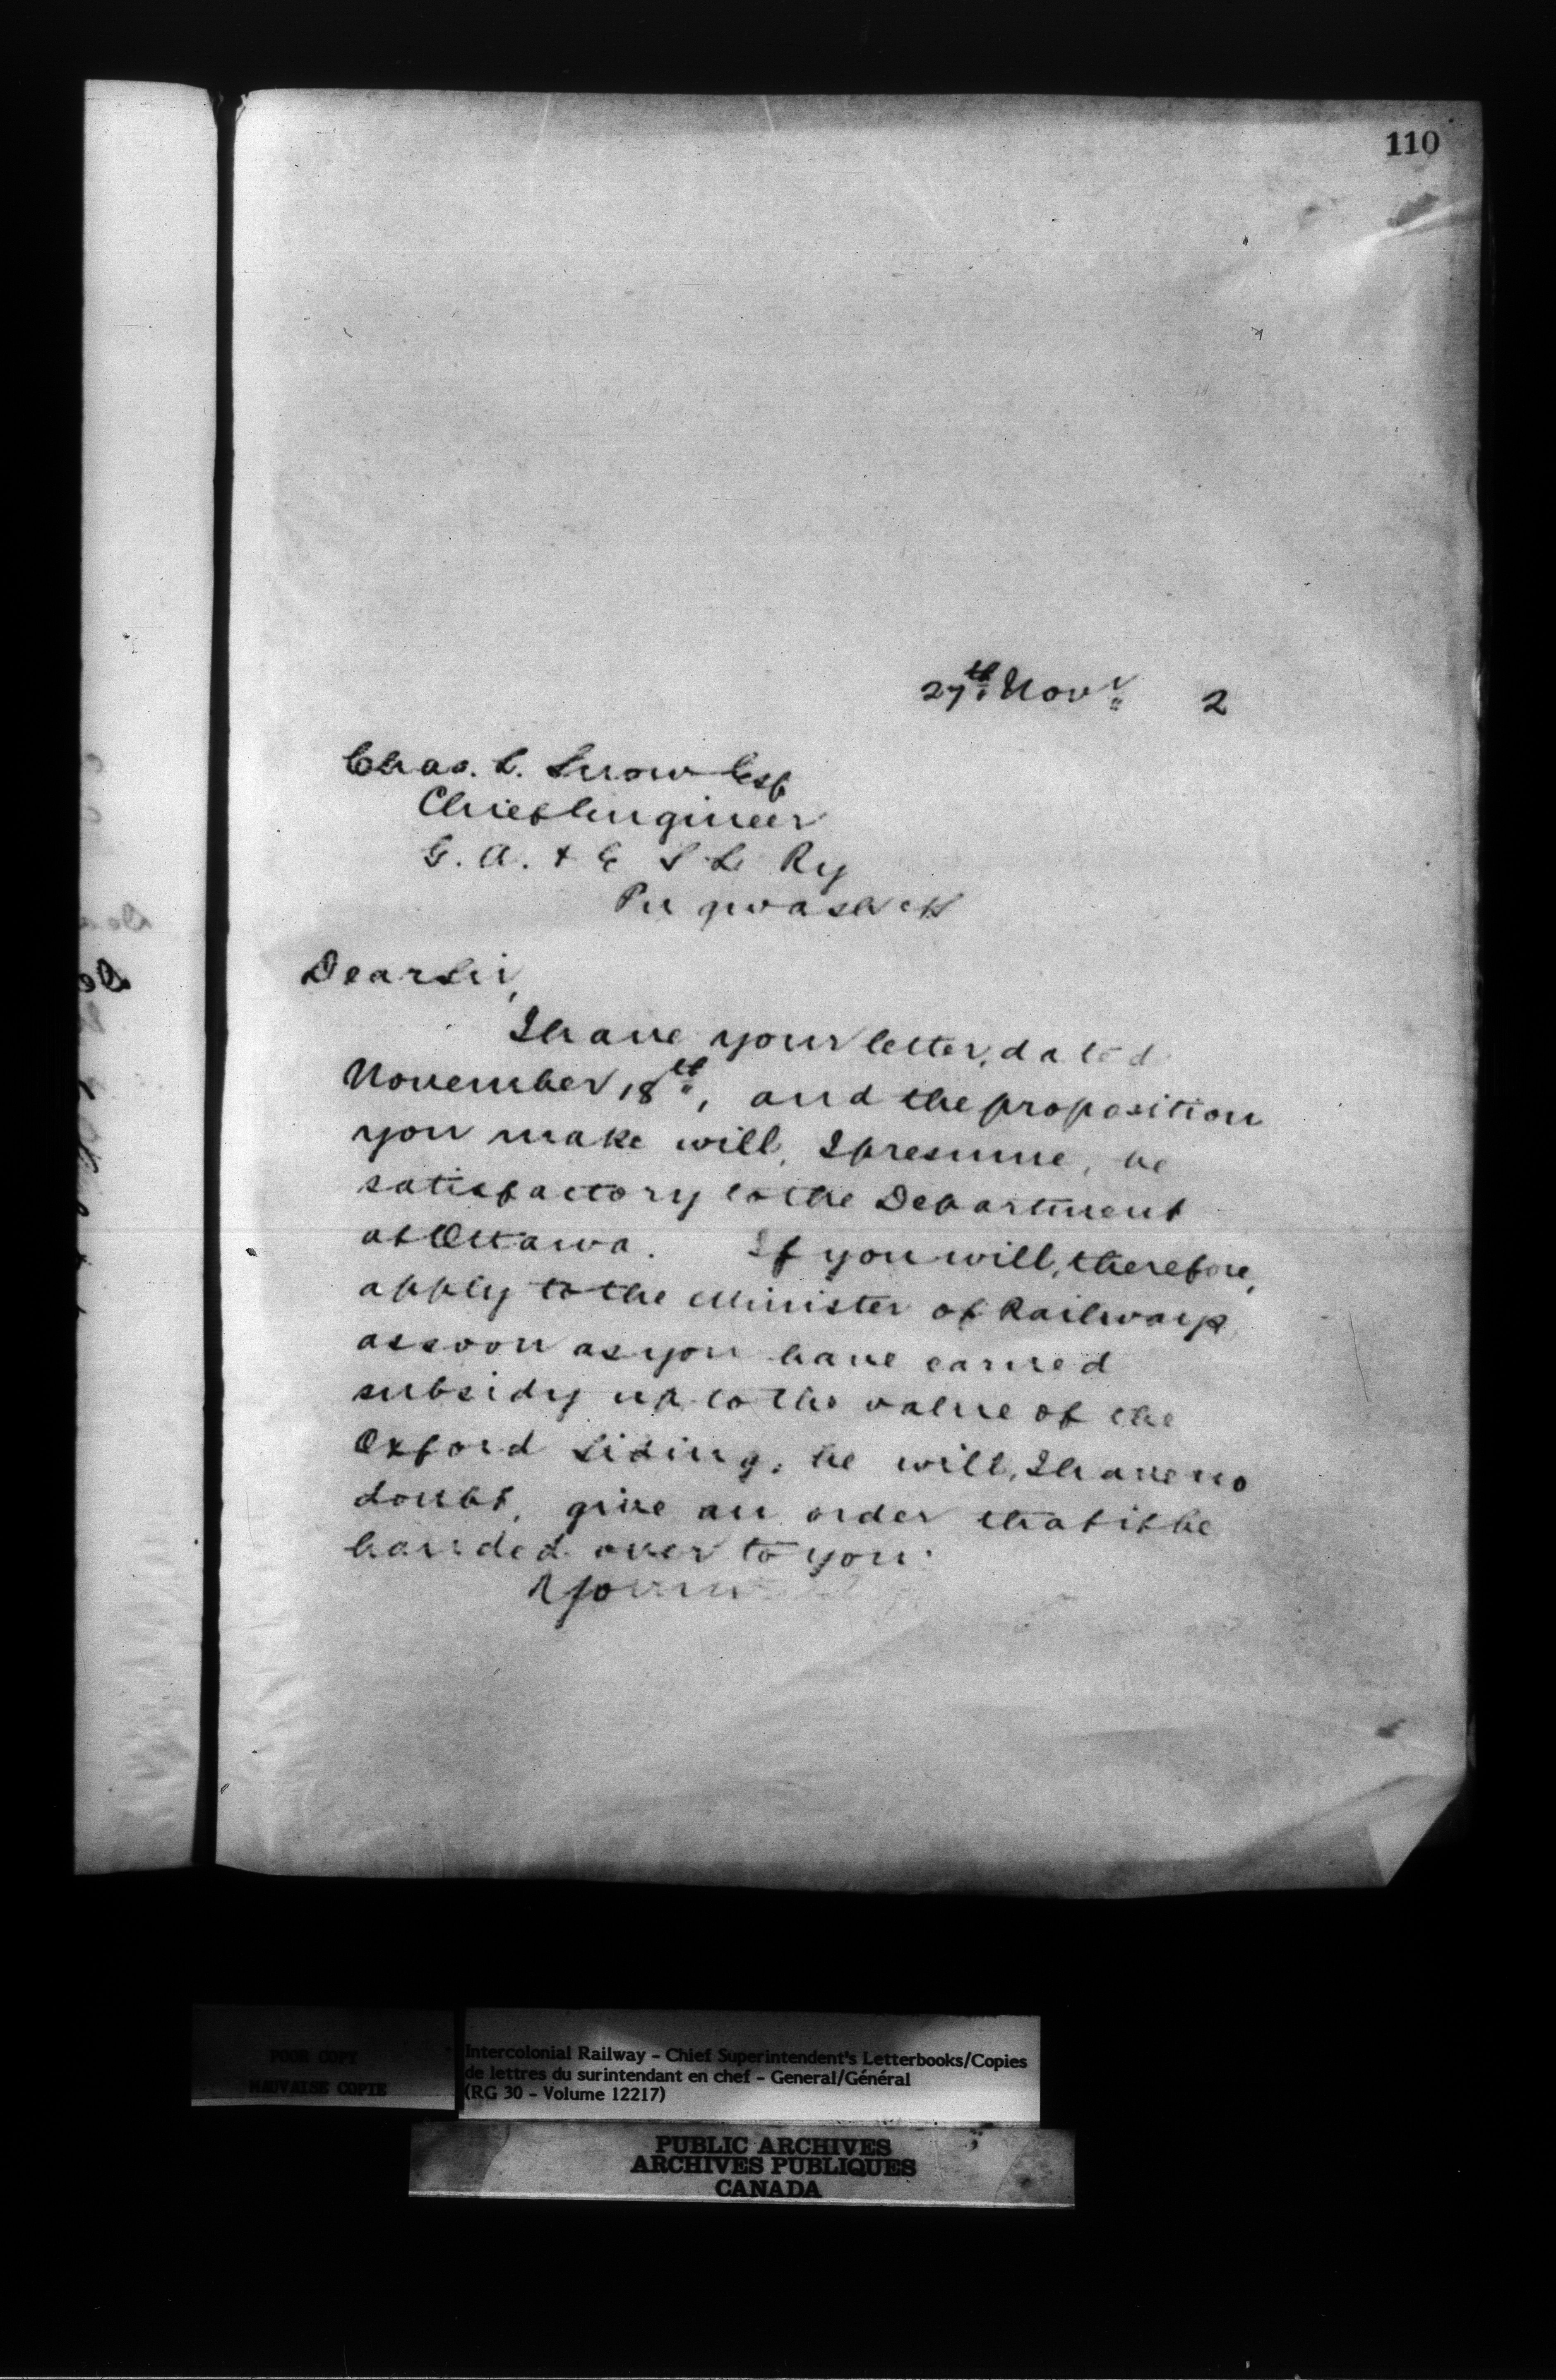 110
27th Novr 2
Chas. L. Snow Esq
Chief Engineer
G. A. & E S L Ry
Pugwash
Dear Sir,
I have your letter, dated
November 18th, and the proposition
you make will, I presume, be
satisfactory to the Department
at Ottawa. If you will, therefore,
apply to the Minister of Railways,
as soon as you have earned
subsidy up to the value of the
Oxford siding, he will, I have no
doubt, give an order that it be
handed over to you.
POOR COPY
MAUVAISE COPIE
Intercolonial Railway - Chief Superintendent's Letterbooks/Copies
de lettres du surintendant en chef - General/Général
(RG 30 - Volume 12217)
PUBLIC ARCHIVES
ARCHIVES PUBLIQUES
CANADA